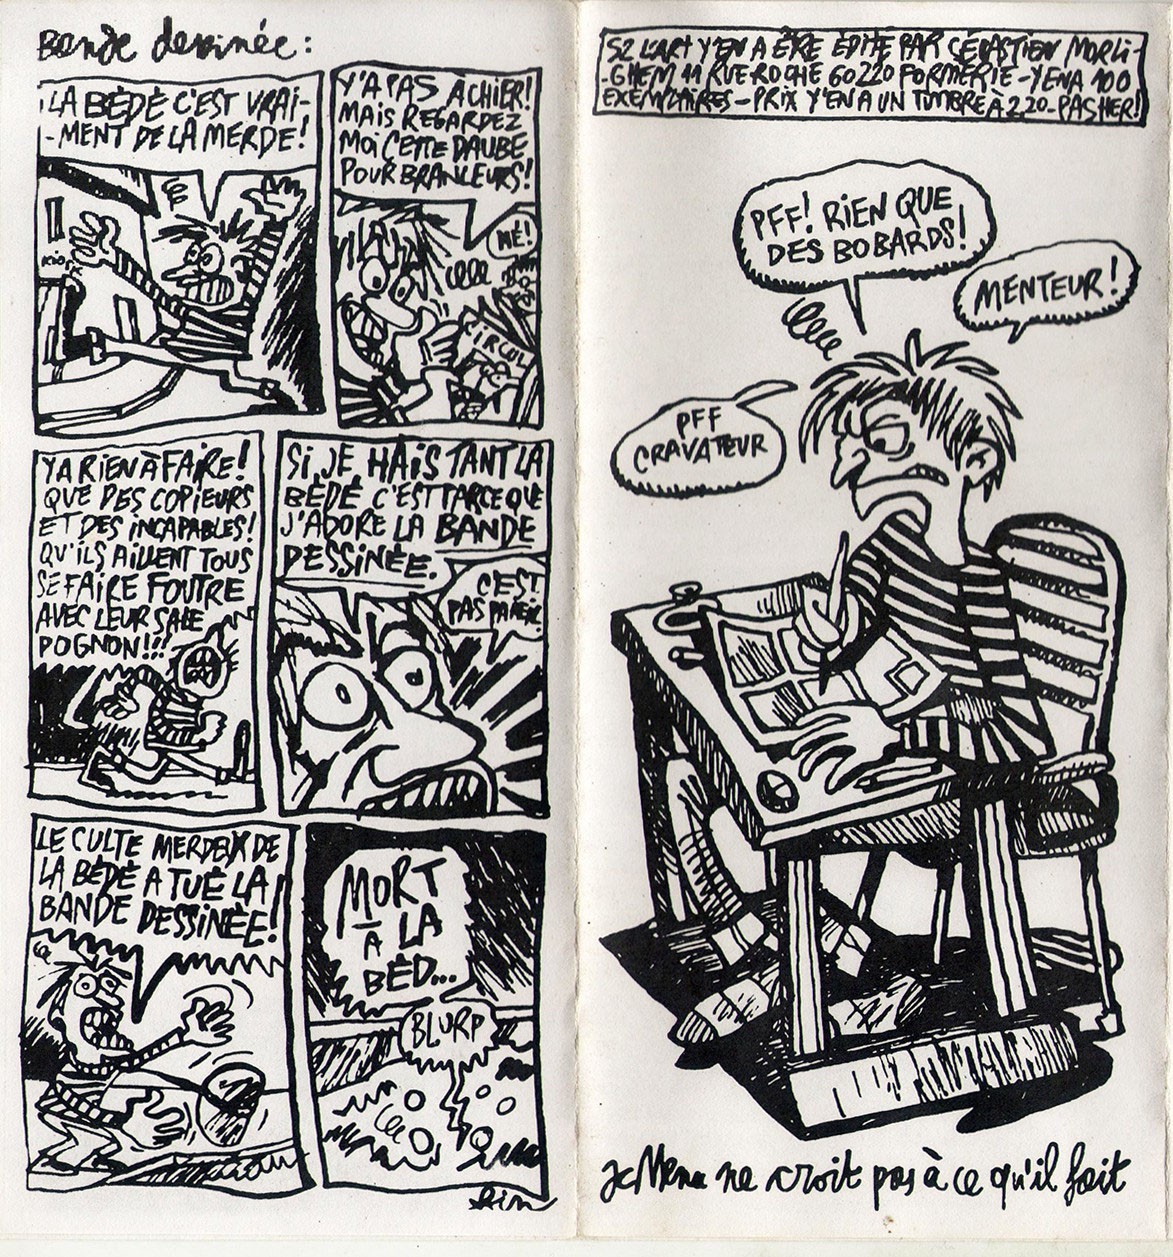 Bande dessinée :
LA BÉDÉ C'EST VRAI-
-MENT DE LA MERDE !
Y'A PAS À CHIER !
MAIS REGARDEZ
MOI CETTE DAUBE
POUR BRANLEURS !
HÉ !
YA RIEN À FAIRE !
QUE DES COPIEURS
ET DES INCAPABLES !
QU'ILS AILLENT TOUS
SE FAIRE FOUTRE
AVEC LEUR SALE
POGNON !!!
SI JE HAIS TANT LA
BÉDÉ C'EST PARCE QUE
J'ADORE LA BANDE
DESSINÉE.
C'EST
PAS PAREIL
LE CULTE MERDEUX DE
LA BÉDÉ A TUÉ LA
BANDE DESSINÉE !
MORT
À LA
BÉD...
BLURP
SZ L'ART Y'EN A ÊRE ÉDITÉ PAR CÉBASTIEN MORLI-
-GHEM 11 RUE ROCHE 60220 FORMERIE - Y EN A 100
EXEMPLAIRES - PRIX Y'EN A UN TIMBRE À 2,20 - PAS HER !
PFF ! RIEN QUE
DES BOBARDS !
MENTEUR !
PFF
CRAVATEUR
Jc Menu ne croit pas à ce qu'il fait